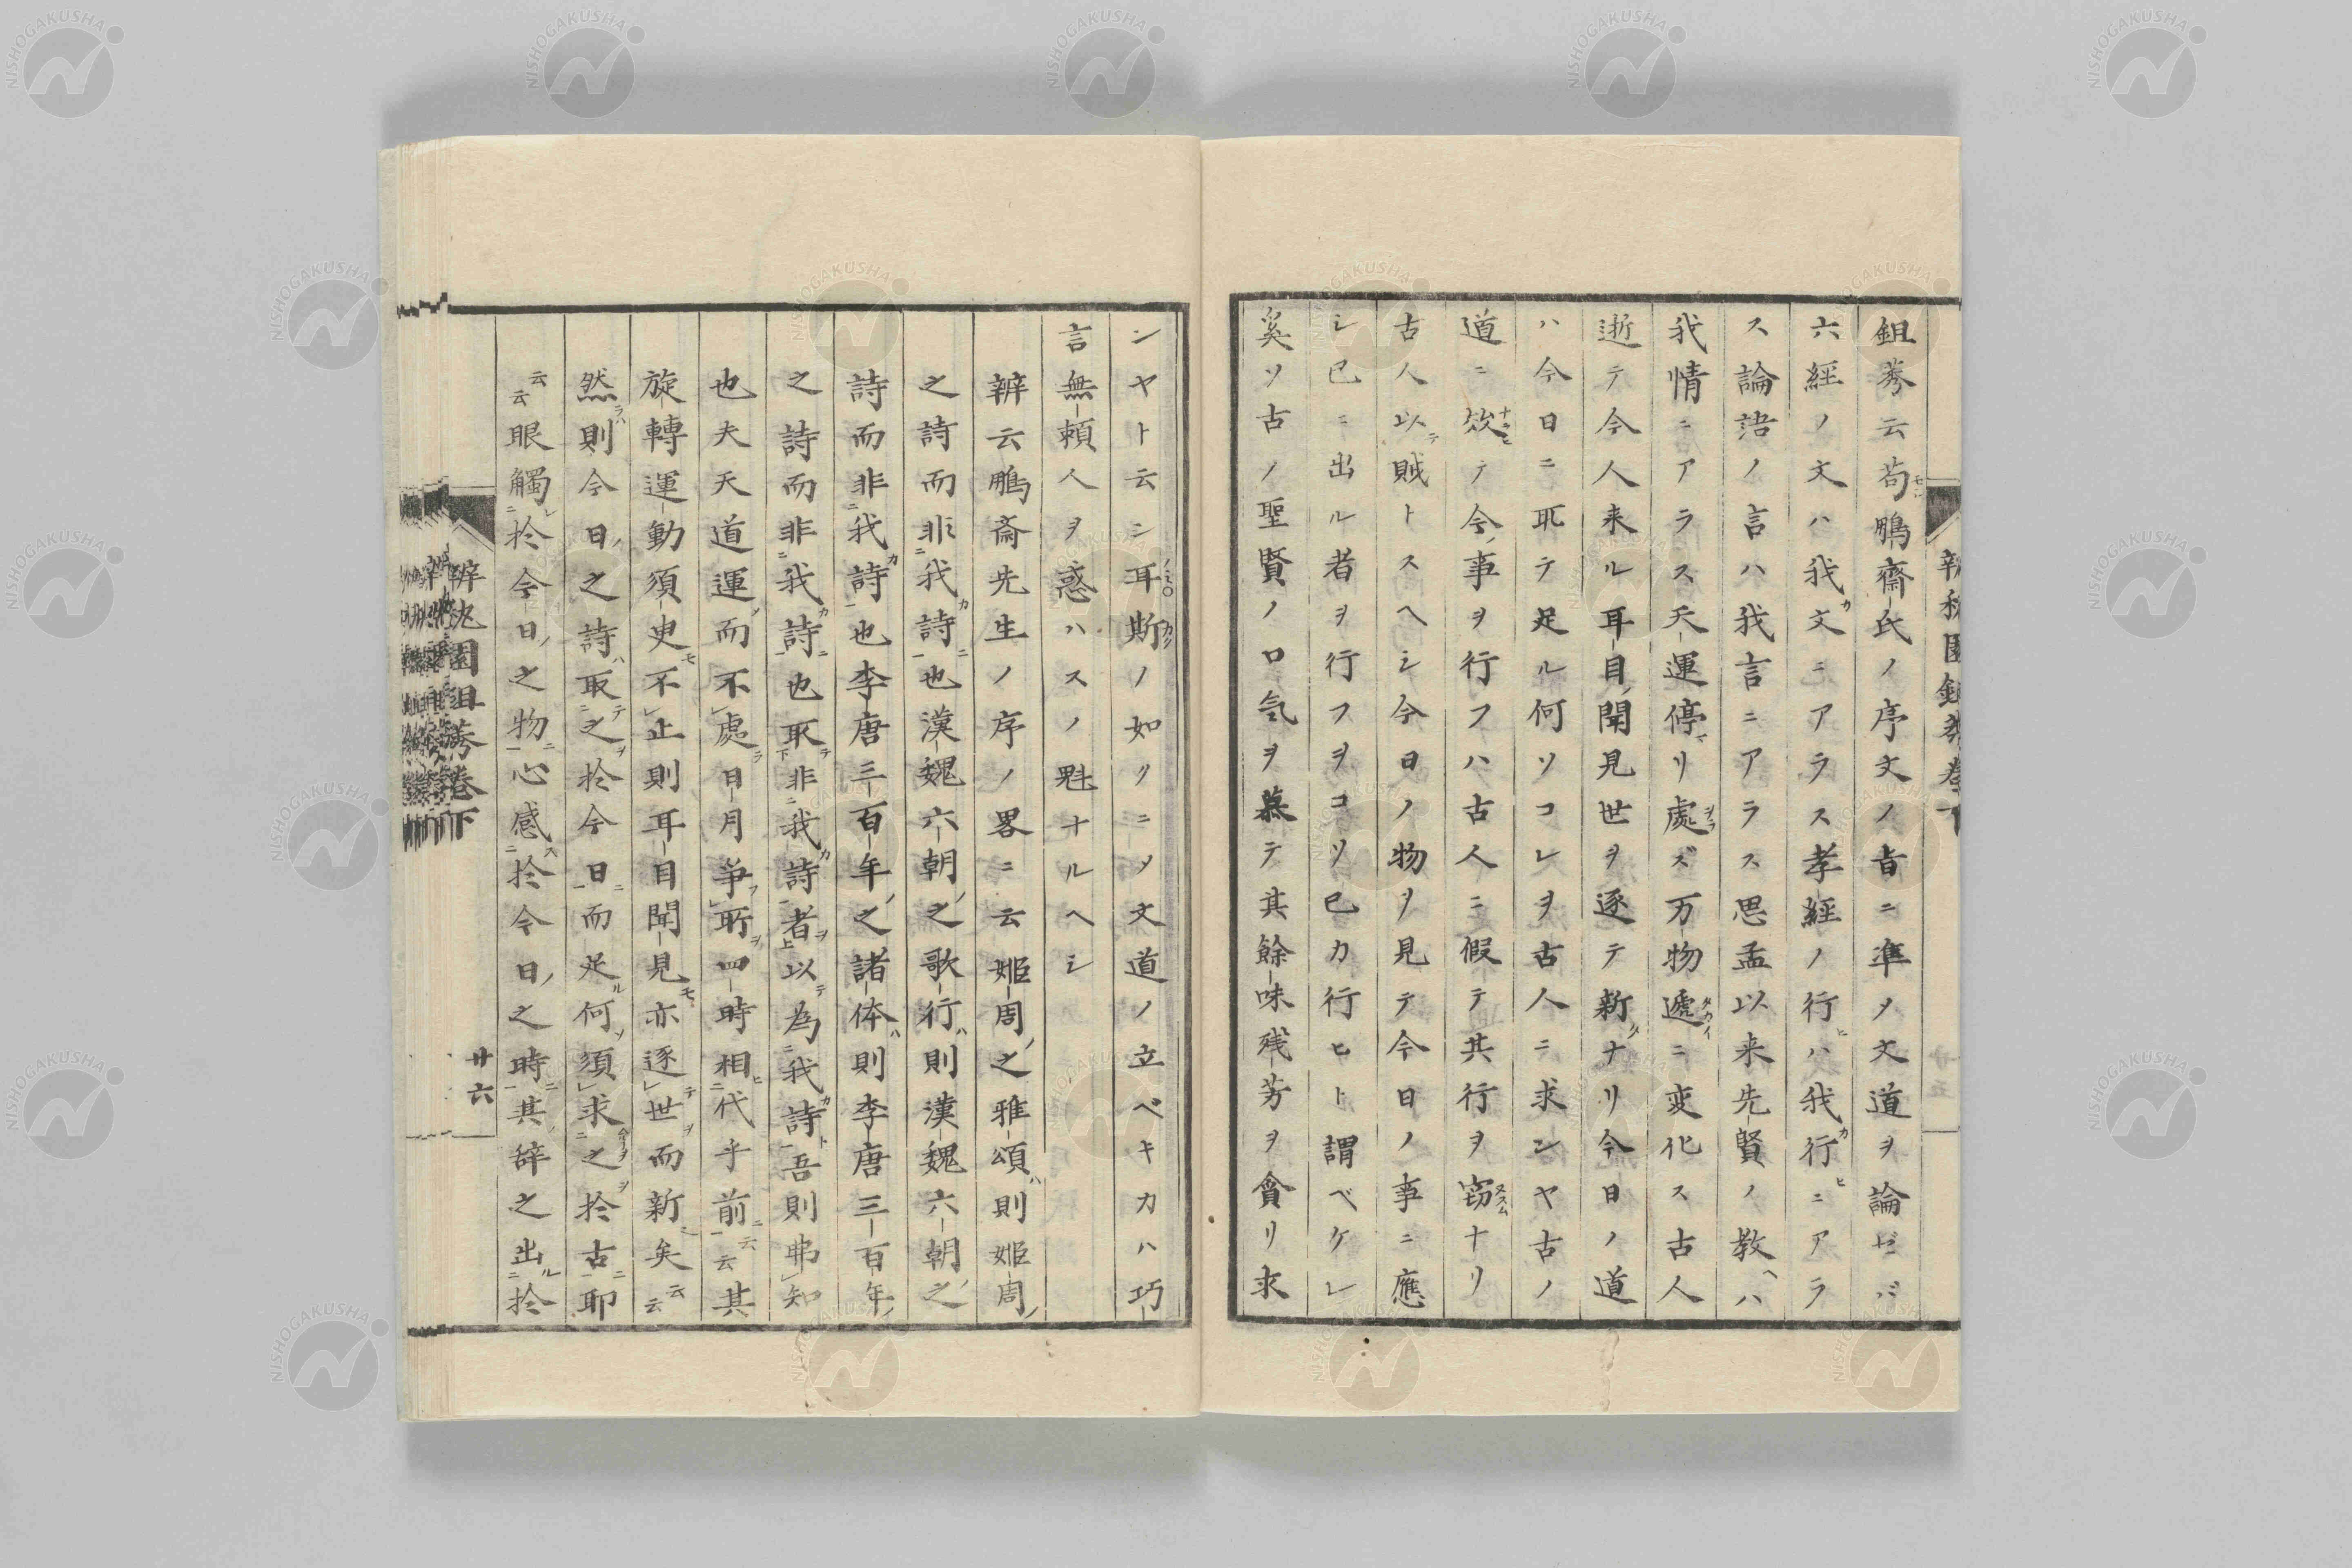 鉏莠云苟鵬齋氏ノ序文ノ旨ニ準ノ文道ヲ論ゼバ
六經ノ文ハ我文ニアラス孝經ノ行ハ我行ニアラ
ス論語ノ言ハ我言ニアラス思孟以来先賢ノ教ハ
我情ニアラス天運停リ處ズ万物遞ニ変化ス古人
逝テ今人来ル耳目聞見世ヲ逐テ新ナリ今日ノ道
ハ今日ニ取テ足ル何ソコレヲ古人ニ求ンヤ古ノ
道ニ效テ今事ヲ行フハ古人ニ假テ其行ヲ窃ナリ
古人以賊トスヘシ今日ノ物ヲ見テ今日ノ事ニ應
シ已ニ出ル者ヲ行フヲコソ已カ行ヒト謂ベケレ
奚ソ古ノ聖賢ノ口気ヲ慕テ其餘味残芳ヲ貪リ求
ンヤト云シ耳斯ノ如クニノ文道ノ立ベキカハ巧
言無頼人ヲ惑ハスノ魁ナルヘシ
辨云鵬斎先生ノ序ノ畧ニ云姬周之雅頌則姬周
之詩而非我詩也漢魏六朝之歌行則漢魏六朝之
詩而非我詩也李唐三百年之諸体則李唐三百年
之詩而非我詩也取非我詩者以為我詩吾則弗知
也夫天道運而不處日月爭所四時相代乎前云云其
旋轉運動須臾不止則耳目聞見亦逐世而新矣云云
然則今日之詩取之於今日而足何須求之於古耶
云云眼觸於今日之物心感於今日之時其辞之出於
辨藐園鉏莠卷下
廿六